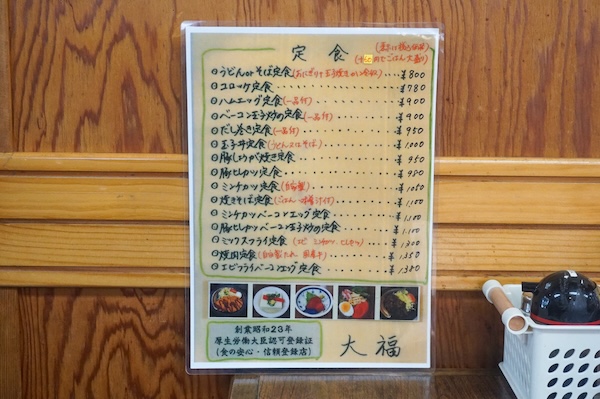 定食
(+50円でごはん大盛り)
うどんorそば定食 ¥800
コロッケ定食 ¥780
ハムエッグ定食(一品付) ¥900
ベーコン玉子炒め定食(一品付) ¥900
だし巻き定食(一品付) ¥950
玉子丼定食(うどん又はそば) ¥1000
豚しょうが焼き定食 ¥950
豚ヒレカツ定食 ¥980
ミンチカツ定食(自家製) ¥1050
焼きそば定食(ごはん・味噌汁付) ¥1,100
ミンチカツベーコンエッグ定食 ¥1,100
豚ヒレカツベーコン玉子炒め定食 ¥1,100
ミックスフライ定食(エビ ミンチカツ ヒレカツ) ¥1,300
焼肉定食(自家製たれ 国産牛) ¥1,350
エビフライベーコンエッグ定食 ¥1,380
創業昭和23年
厚生労働大臣認可登録証
(食の安心・信頼登録店)
大福